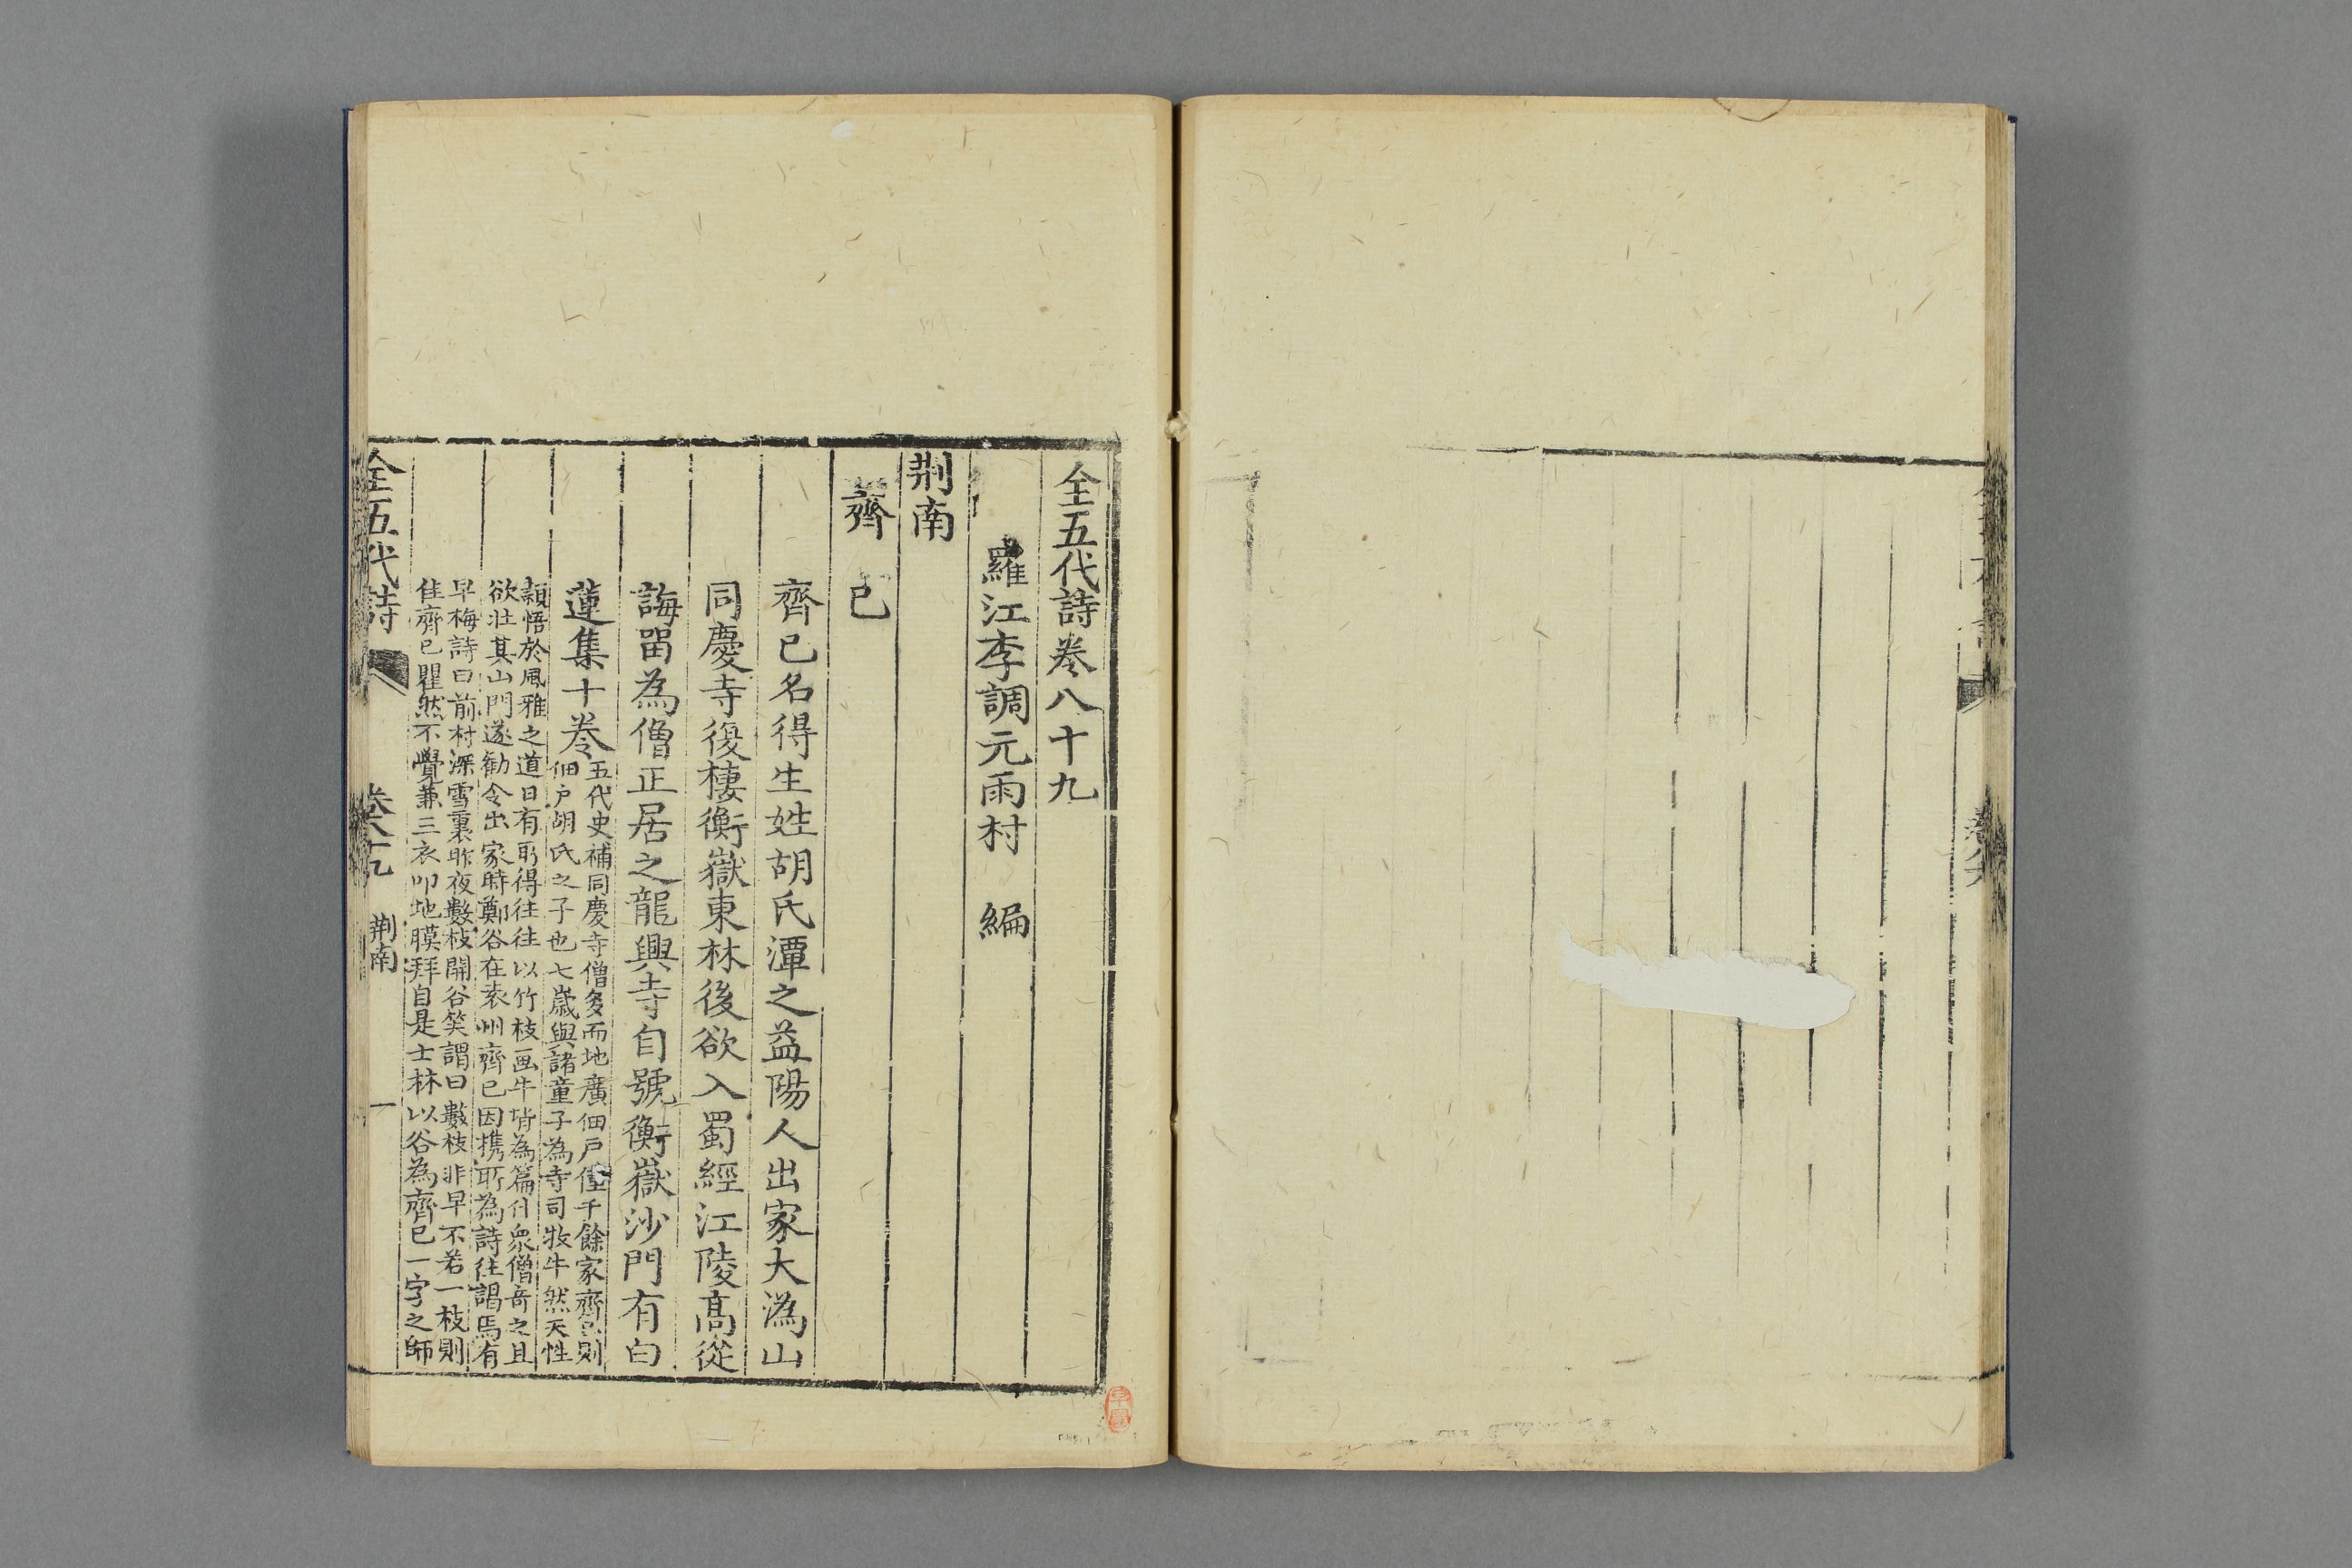 全五代詩卷八十九
羅江李調元雨村 編
荆南
齊已
齊已名得生姓胡氏潭之益陽人出家大溈山
同慶寺復棲衡嶽東林後欲入蜀經江陵髙從
誨留為僧正居之龍興寺自號衡嶽沙門有白
蓮集十卷
五代史補同慶寺僧多而地廣佃戶僅千餘家齊已則
佃戶胡氏之子也七歲與諸童子為寺司牧牛然天性
頴悟於風雅之道日有所得往往以竹枝画牛背為篇什衆僧竒之且
欲壯其山門遂勸令出家時鄭谷在袁州齊已因携所為詩往謁焉有
早梅詩曰前村深雪裏昨夜數枝開谷笑謂曰數枝非早不若一枝則
佳齊已瞿然不覺兼三衣叩地膜拜自是士林以谷為齊已一字之師
全五代詩 卷八十九 荆南 一